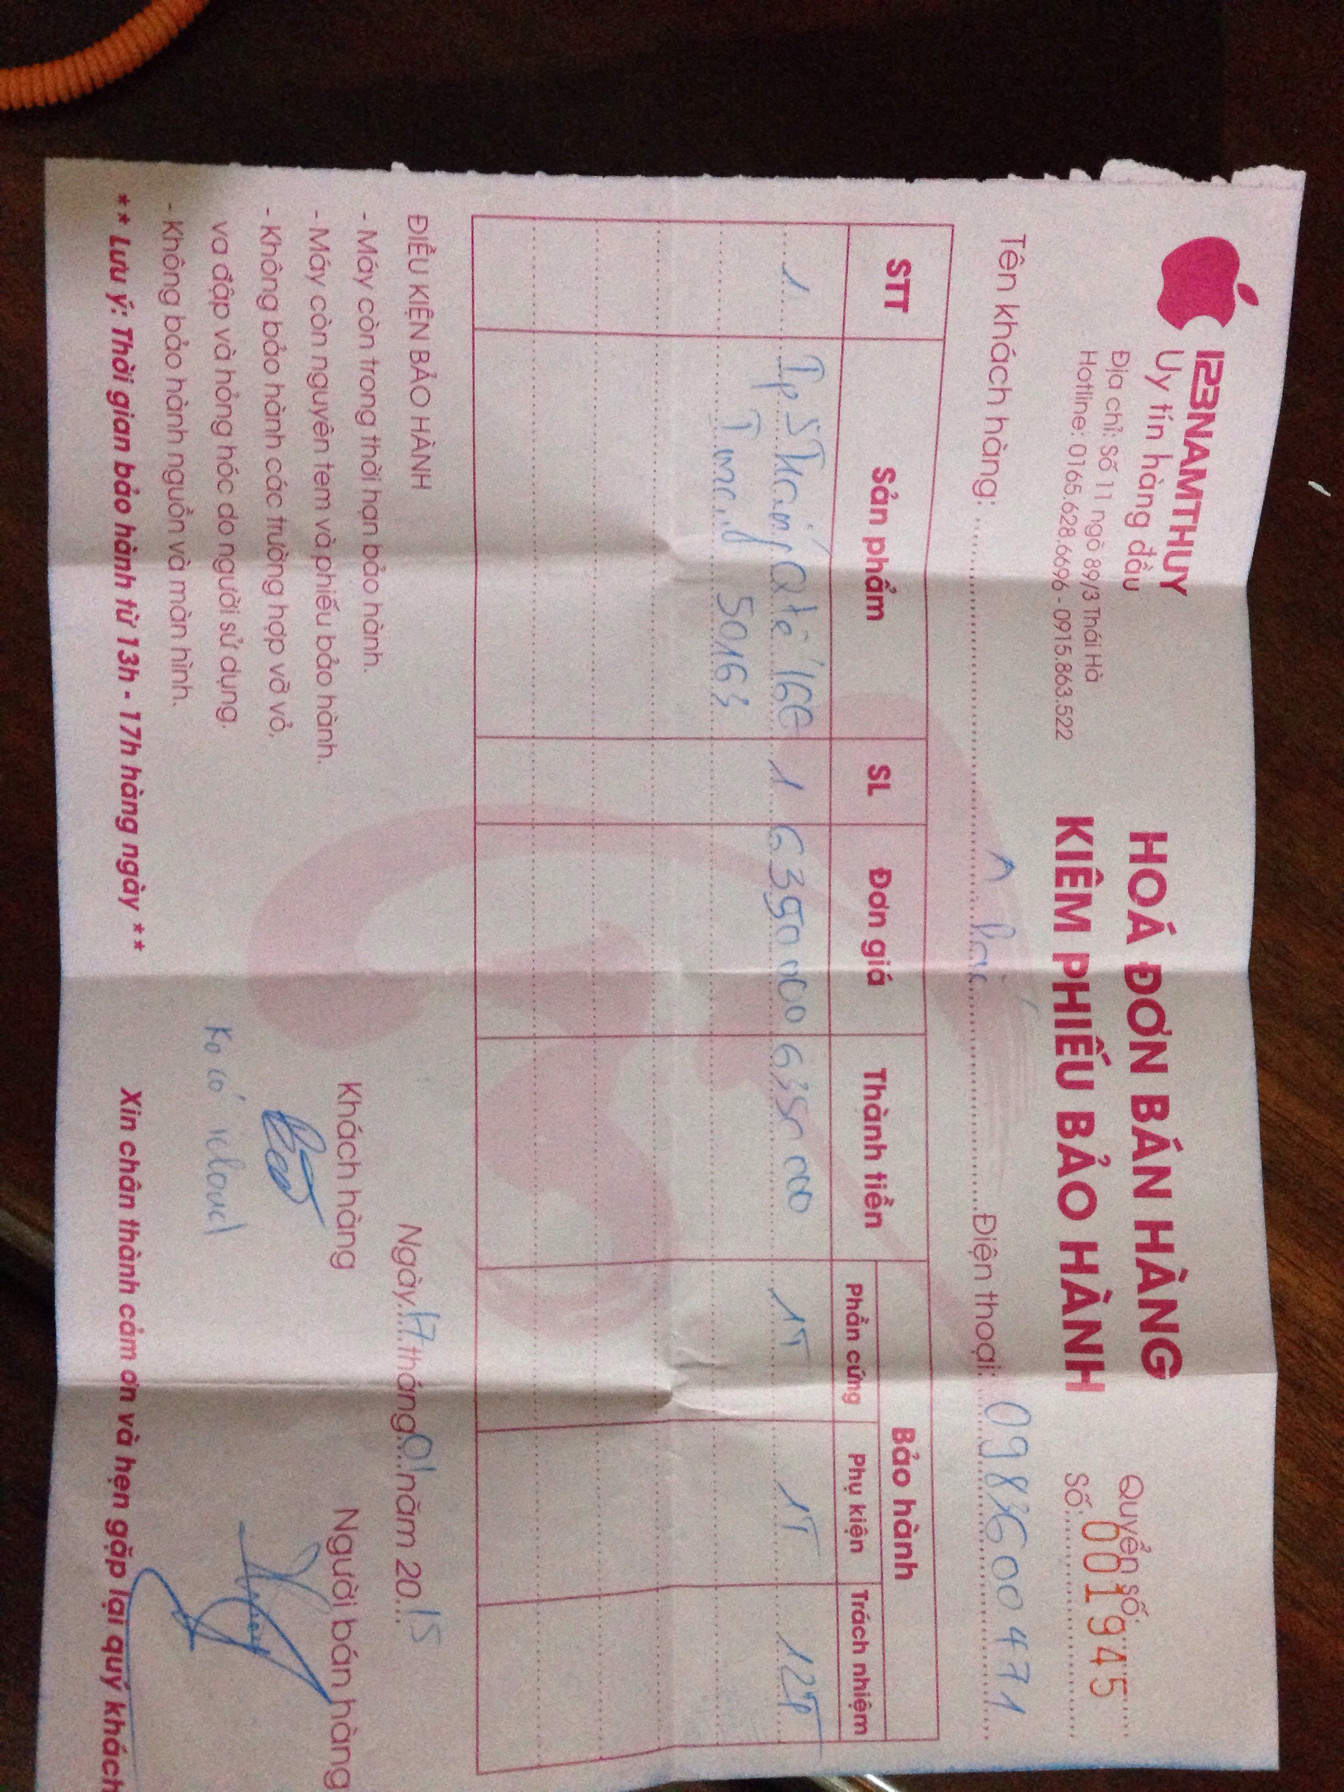 123NAMTHUY
Uy tín hàng đầu
Địa chỉ: Số 11 ngõ 89/3 Thái Hà
Hotline: 0165.628.6696 - 0915.863.522
HOÁ ĐƠN BÁN HÀNG
KIÊM PHIẾU BẢO HÀNH
Quyển số:
Số: 001945
Tên khách hàng: A Điện thoại: 0983600471
STT Sản phẩm SL Đơn giá Thành tiền Bảo hành
Phần cứng Phụ kiện Trách nhiệm
1 Ip 5 Qtế 16G 1 6350 000 6350 000 1T 1T 12T
50163
ĐIỀU KIỆN BẢO HÀNH
- Máy còn trong thời hạn bảo hành.
- Máy còn nguyên tem và phiếu bảo hành.
- Không bảo hành các trường hợp vỡ vỏ,
va đập và hỏng hóc do người sử dụng.
- Không bảo hành nguồn và màn hình.
** Lưu ý: Thời gian bảo hành từ 13h - 17h hàng ngày **
Ngày 17 tháng 01 năm 2015
Khách hàng
Người bán hàng
Ko có icloud
Xin chân thành cảm ơn và hẹn gặp lại quý khách